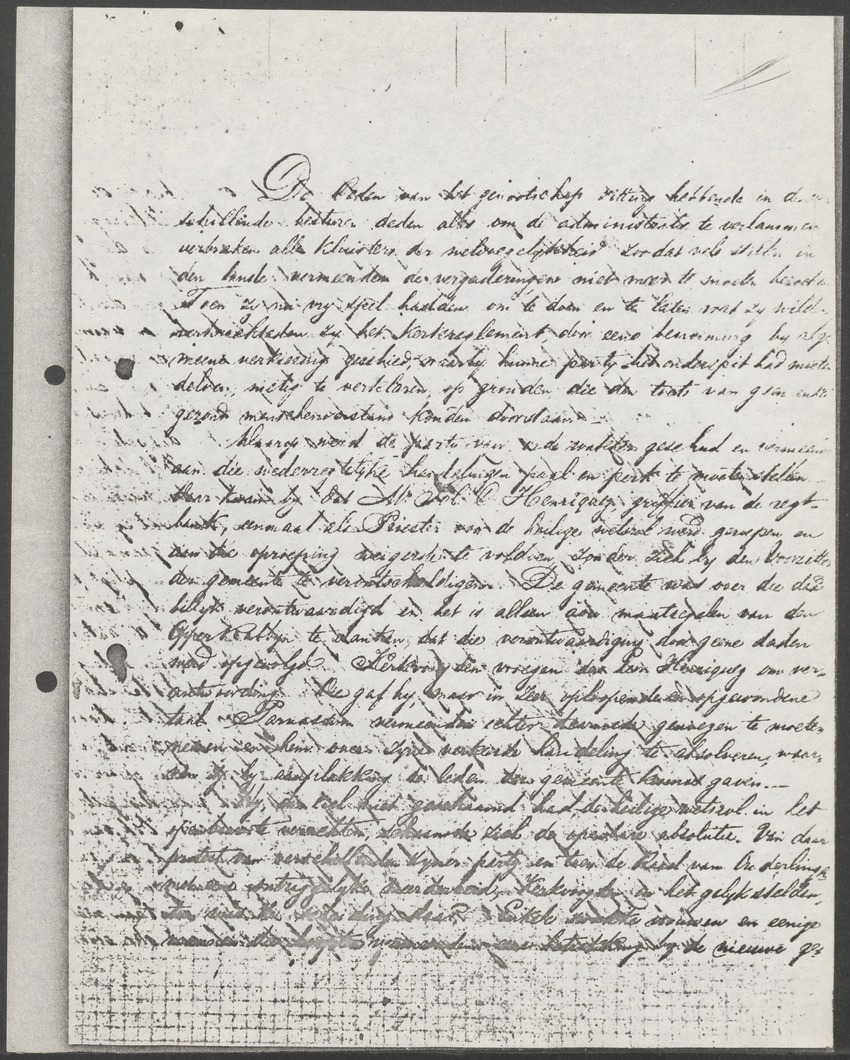 De leden van het genootschap zitting hebbende in de ver-
schillende besturen deden alles om de administratie te verlammen
verbraken alle kluisters der welvoegelijkheid zoodat vele stillen in
den lande vermeenden de vergaderingen niet meer te moeten bezoeken
Toen zy nu vry spel hadden om te doen en te laten wat zy wilden
het kerkreglement, door eene benoeming by alge-
meene verkiezing geschied, waarby hunne party het onderspit had moeten
delven, nietig te verklaren, op gronden die den toets van geen enkel
gezond menschenverstand konden doorstaan.
Daarop werd de party van de wakker geschud en vermeende
aan die wederrechtelyke handelingen paal en perk te moeten stellen
Daar kwam by dat Mr Sol. C Henriquez, griffier van de regt-
bank, eenmaal als Priester voor de heilige wetsrol werd geroepen en
aan die oproeping weigerde te voldoen, zonder zich by den voorzitter
der gemeente te verontschuldigen. De gemeente was over die daad
billyk verontwaardigd en het is alleen aan maatregelen van den
Opperrabbyn te danken, dat die verontwaardiging door geene daden
werd opgevolgd. Kerkvoogden vroegen den Heer Henriquez om ver-
antwoording. Die gaf hy, maar in zeer oploopende en opgewondene
taal. Parnassim vermeenden echter daarmede genoegen te moeten
nemen en hem over zyne verkeerde handeling te absolveren, waar-
van zy by aanplakking de leden der gemeente kennis gaven.—
Hy, die zich niet geschaamd had, de heilige wetsrol in het
openbaar te verachten, schaamde zich de openbare absolutie. Van daar
protest van verschillenden zyner party en toen de Raad van Ouderlingen
met eene meerderheid, Kerkvoogden in het gelyk stelden,
was de scheiding daar. Enkele zwakke vrouwen en eenige
mannen die by de nieuwe ge-